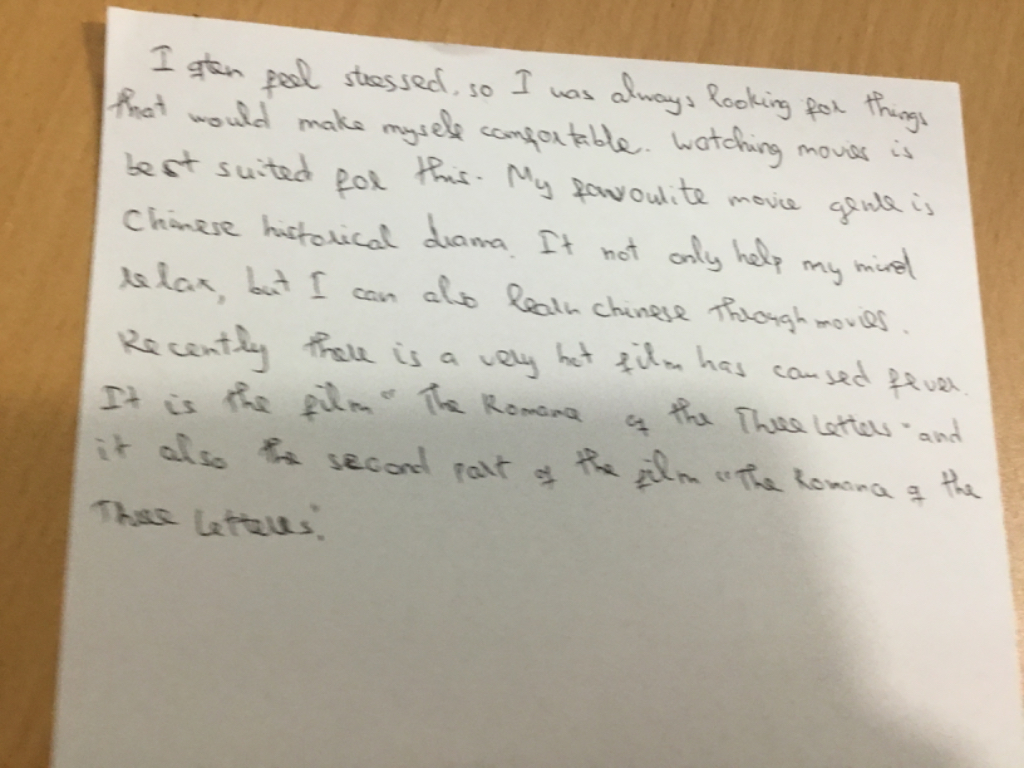 I often feel stressed, so I was always looking for things
that would make myself comfortable. Watching movies is
best suited for this. My favourite movie genre is
Chinese historical drama. It not only help my mind
relax, but I can also learn chinese through movies.
Recently there is a very hot film has caused fever.
It is the film "The Romance of the Three Letters" and
it also the second part of the film "The Romance of the
Three Letters".